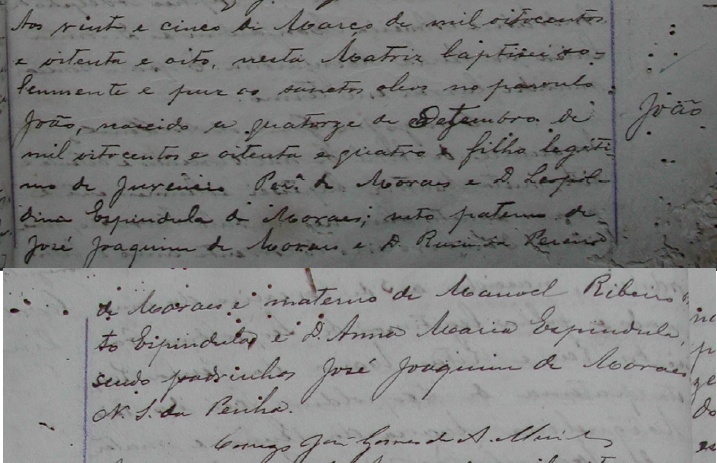 Aos vinte e cinco de Março de mil oitocentos
e oitenta e oito, nesta Matriz baptisei so-
lemnemente e puz os santos oleos no parvulo
João, nascido a quatorze de Setembro de
mil oitocentos e oitenta e quatro e filho legiti-
mo de Per.ª de Moraes e D. Leopol-
dina Espindula de Moraes; neto paterno de
José Joaquim de Moraes e D. Pereira
João
de Moraes e materno de Manoel Ribeiro
Espindula e D. Anna Maria Espindula,
sendo padrinhos José Joaquim de Moraes
N. S. da Penha.
Conego José Gomes de A.